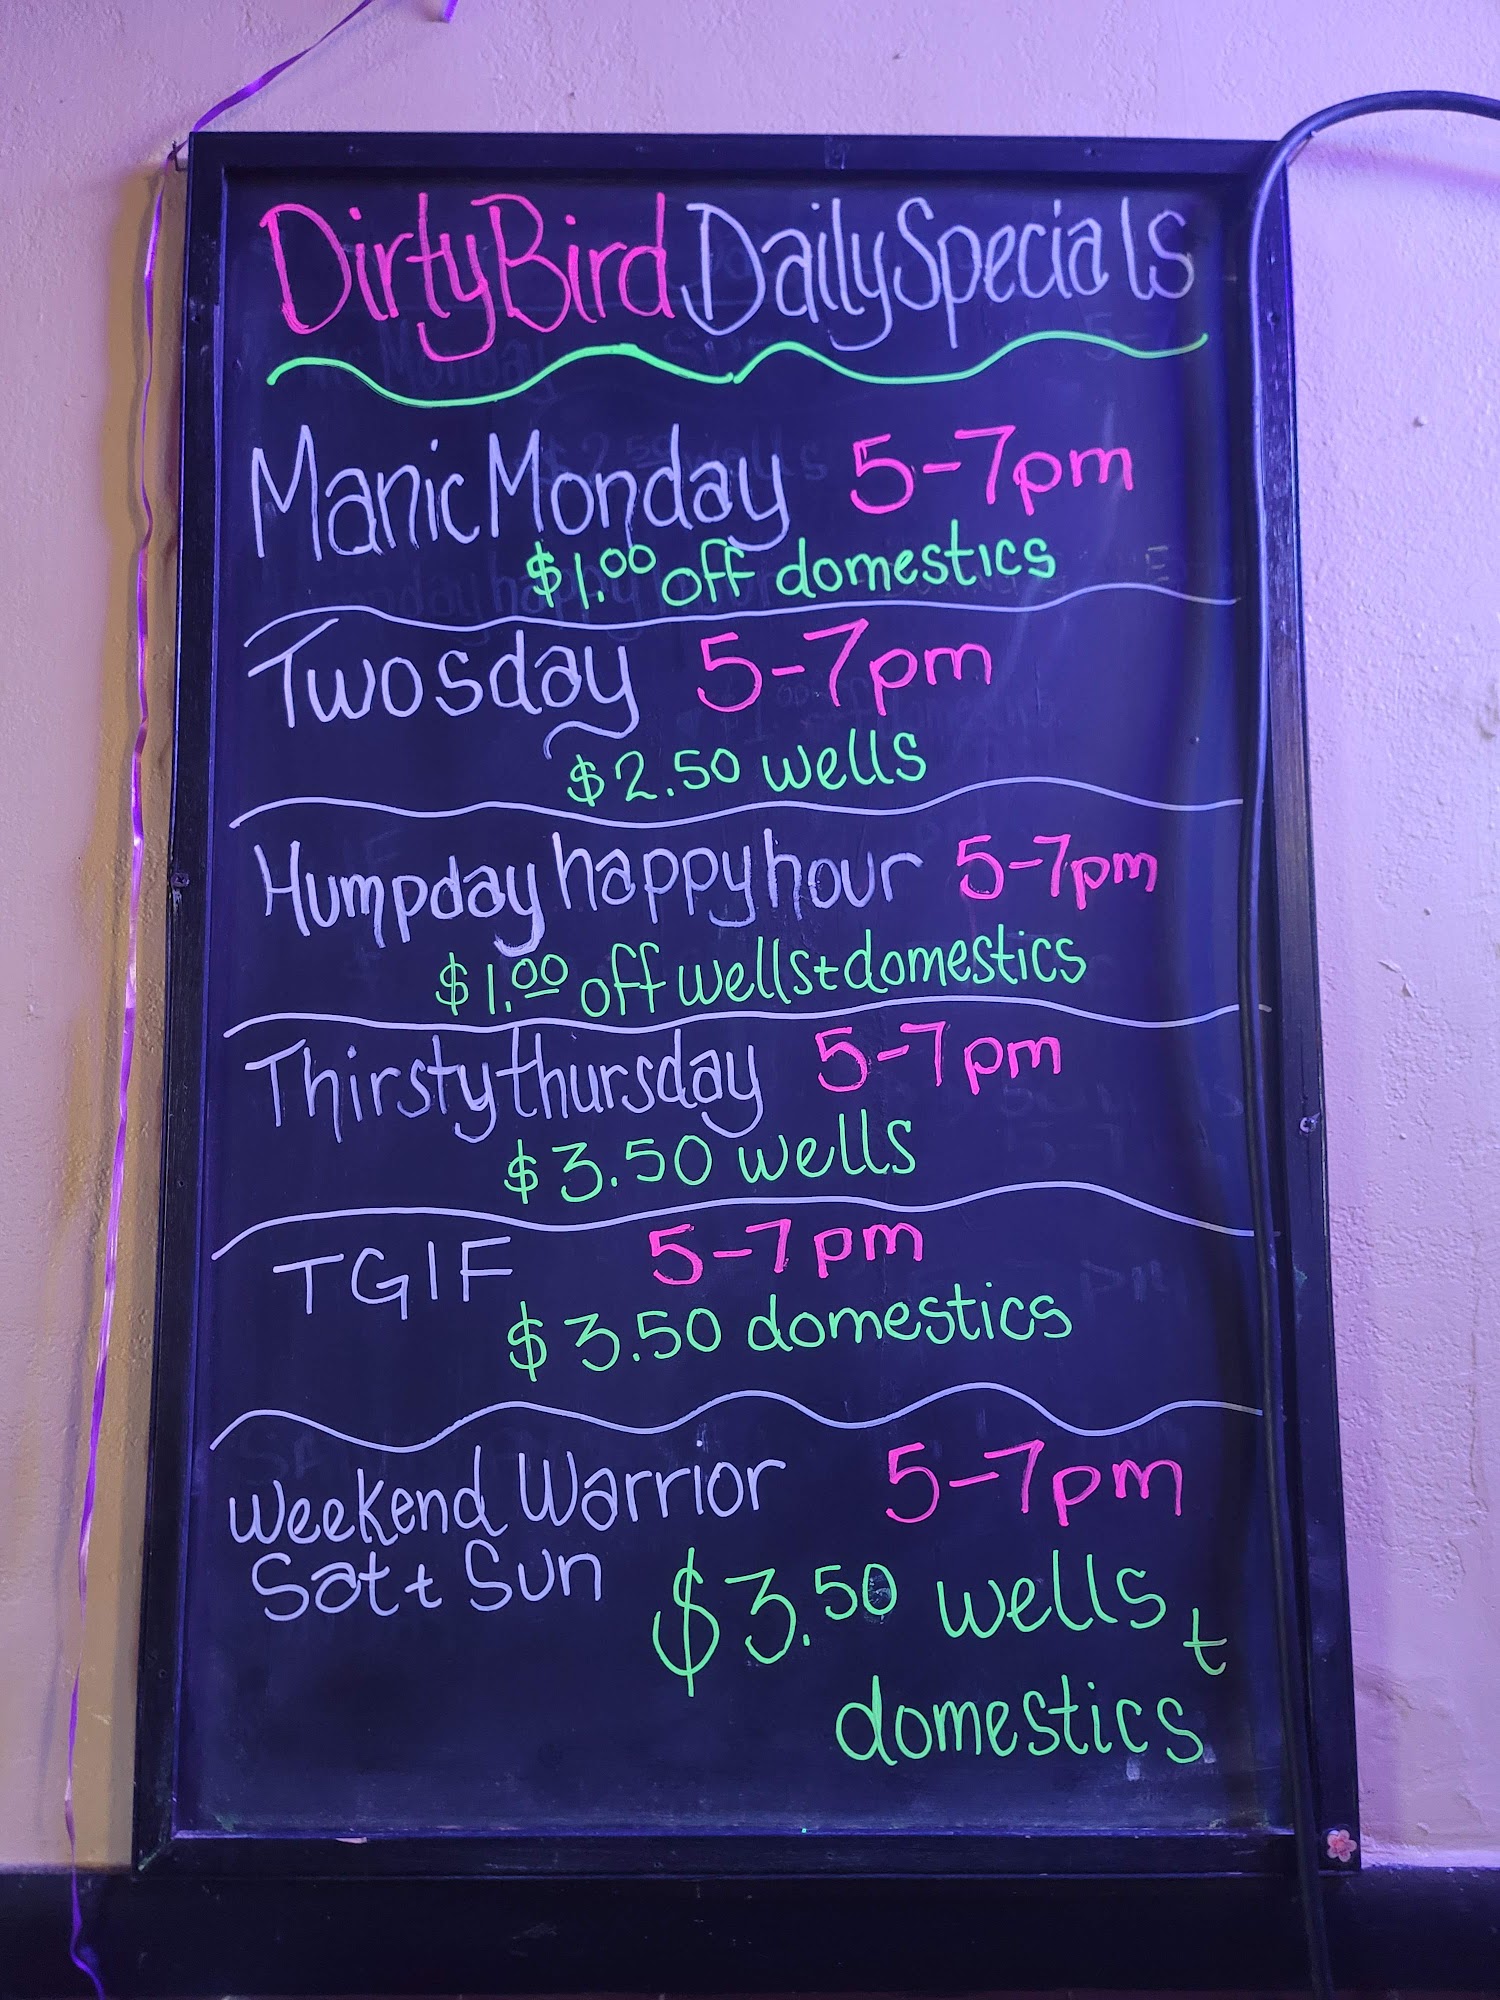 Dirty Bird Daily Specials
Manic Monday 5-7pm
$1.00 off domestics
Twosday 5-7pm
$2.50 wells
Humpday happy hour 5-7pm
$1.00 off wells + domestics
Thirsty thursday 5-7pm
$3.50 wells
TGIF 5-7pm
$3.50 domestics
Weekend Warrior 5-7pm
Sat + Sun $3.50 wells +
domestics